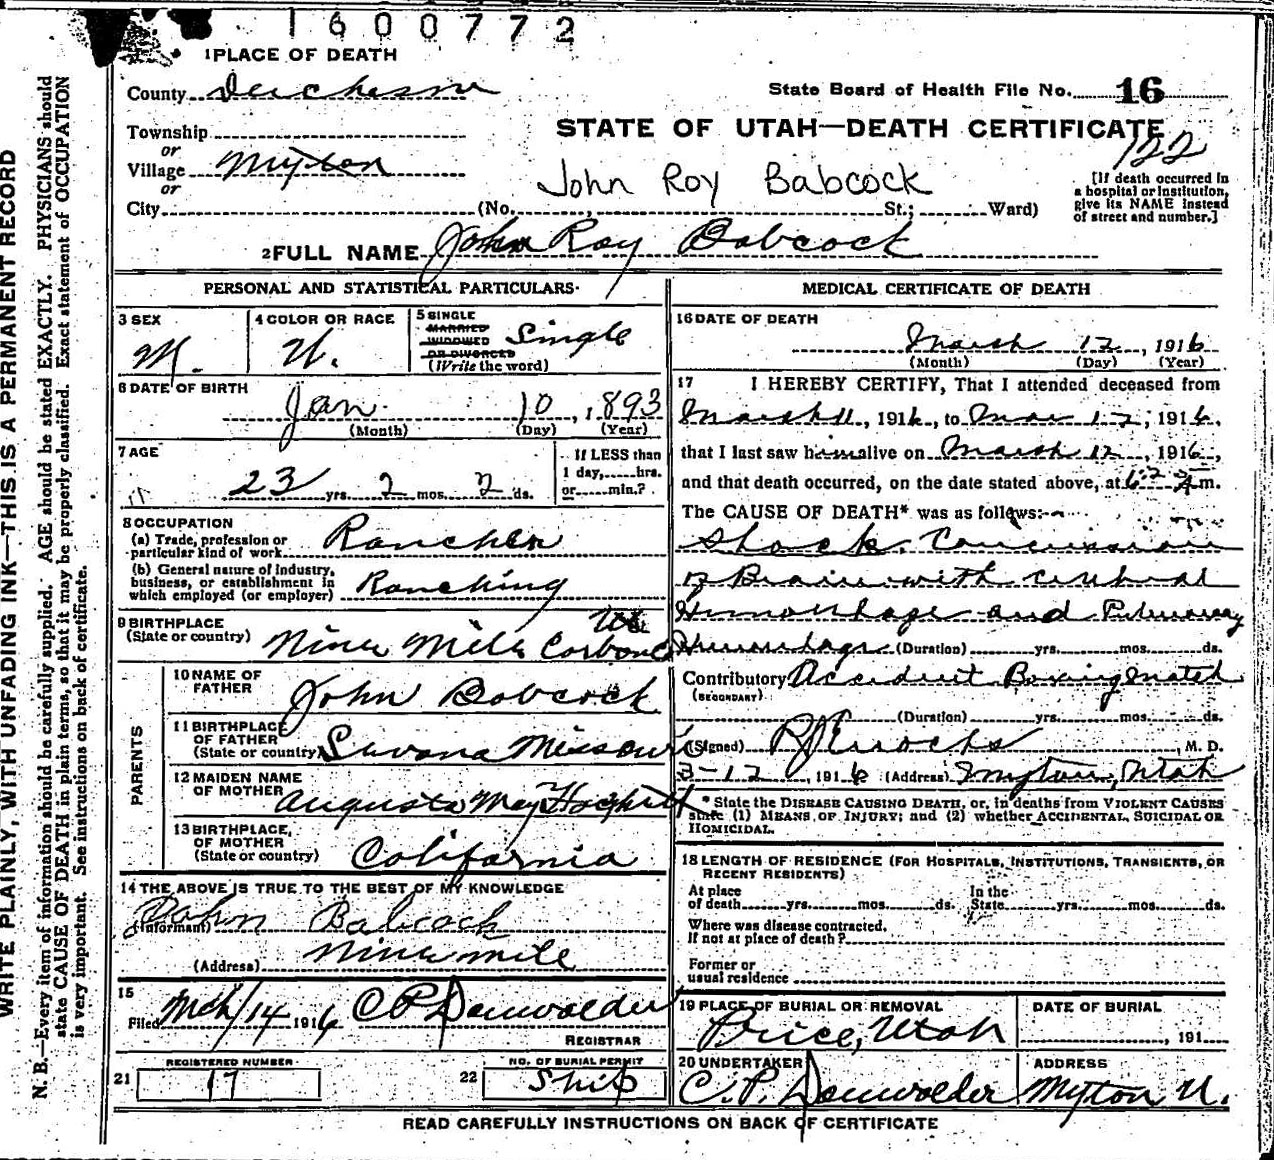 1600772
1 PLACE OF DEATH
County Duchesne
State Board of Health File No. 16
Township
STATE OF UTAH—DEATH CERTIFICATE
122
or
Village Myton
or
John Roy Babcock
[If death occurred in
a hospital or institution,
give its NAME instead
of street and number.]
City (No. St.; Ward)
2 FULL NAME John Roy Babcock
PERSONAL AND STATISTICAL PARTICULARS
3 SEX
M.
4 COLOR OR RACE
W.
5 SINGLE
MARRIED
WIDOWED
OR DIVORCED
(Write the word)
Single
6 DATE OF BIRTH
Jan. 10, 1893
(Month) (Day) (Year)
7 AGE
23 yrs. 2 mos. 2 ds.
If LESS than
1 day, hrs.
or min.?
8 OCCUPATION
(a) Trade, profession or
particular kind of work Rancher
(b) General nature of industry,
business, or establishment in
which employed (or employer) Ranching
9 BIRTHPLACE
(State or country) Nine Mile Carbon Co
PARENTS
10 NAME OF
FATHER John Babcock
11 BIRTHPLACE
OF FATHER
(State or country) Savana Missouri
12 MAIDEN NAME
OF MOTHER Augusta May
13 BIRTHPLACE
OF MOTHER
(State or country) California
14 THE ABOVE IS TRUE TO THE BEST OF MY KNOWLEDGE
(Informant) John Babcock
(Address) Nine mile
15
Filed Mch/14 1916 C P
REGISTRAR
REGISTERED NUMBER
21 17
NO. OF BURIAL PERMIT
22 Ship
MEDICAL CERTIFICATE OF DEATH
16 DATE OF DEATH
March 12, 1916
(Month) (Day) (Year)
17 I HEREBY CERTIFY, That I attended deceased from
March 11, 1916, to Mar 12, 1916,
that I last saw him alive on March 12, 1916,
and that death occurred, on the date stated above, at m.
The CAUSE OF DEATH* was as follows:
Shock. Concussion
of Brain with cerebral
Hemorrhage and Pulmonary
Hemorrhage (Duration) yrs. mos. ds.
Contributory Accident Boxing Match
(SECONDARY)
(Duration) yrs. mos. ds.
(Signed) , M. D.
3-12, 1916 (Address) Myton, Utah
* State the DISEASE CAUSING DEATH, or, in deaths from VIOLENT CAUSES
state (1) MEANS OF INJURY; and (2) whether ACCIDENTAL, SUICIDAL OR
HOMICIDAL.
18 LENGTH OF RESIDENCE (FOR HOSPITALS, INSTITUTIONS, TRANSIENTS, OR
RECENT RESIDENTS)
At place
of death yrs. mos. ds.
In the
State yrs. mos. ds.
Where was disease contracted,
if not at place of death?
Former or
usual residence
19 PLACE OF BURIAL OR REMOVAL
Price, Utah
DATE OF BURIAL
, 191
20 UNDERTAKER
C. P.
ADDRESS
Myton U.
READ CAREFULLY INSTRUCTIONS ON BACK OF CERTIFICATE
WRITE PLAINLY, WITH UNFADING INK—THIS IS A PERMANENT RECORD
N. B.—Every item of information should be carefully supplied. AGE should be stated EXACTLY. PHYSICIANS should
state CAUSE OF DEATH in plain terms, so that it may be properly classified. Exact statement of OCCUPATION
is very important. See instructions on back of certificate.